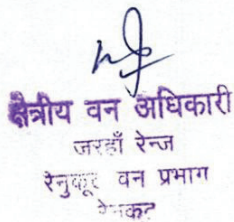 क्षेत्रीय वन अधिकारी
जरहाँ रेन्ज
रेनुकूट वन प्रभाग
रेनुकूट